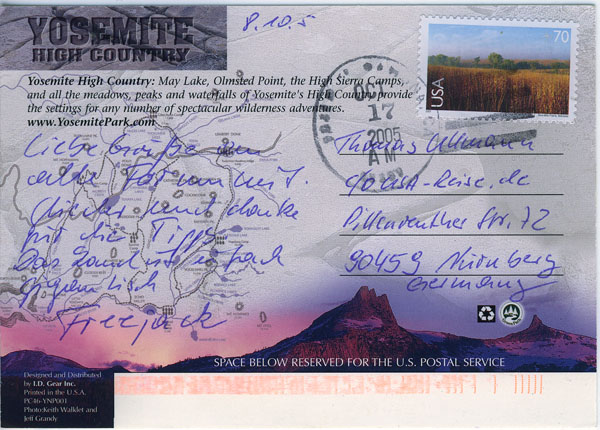 YOSEMITE
HIGH COUNTRY
8.10.5
Yosemite High Country: May Lake, Olmsted Point, the High Sierra Camps,
and all the meadows, peaks and waterfalls of Yosemite's High Country provide
the settings for any number of spectacular wilderness adventures.
www.YosemitePark.com
70
USA
OCT
17
2005
AM
Liebe Grüße vom
alle Forum mit.
vielen Dank
für die Tipps
Das Land ist einfach
gigantisch
Freejack
Thomas Ullmann
c/o USA-Reise.de
Pillenreuther Str. 72
90459 Nürnberg
Germany
SPACE BELOW RESERVED FOR THE U.S. POSTAL SERVICE
Designed and Distributed
by I.D. Gear Inc.
Printed in the U.S.A.
PC46-YNP001
Photo:Keith Walklet and
Jeff Grandy